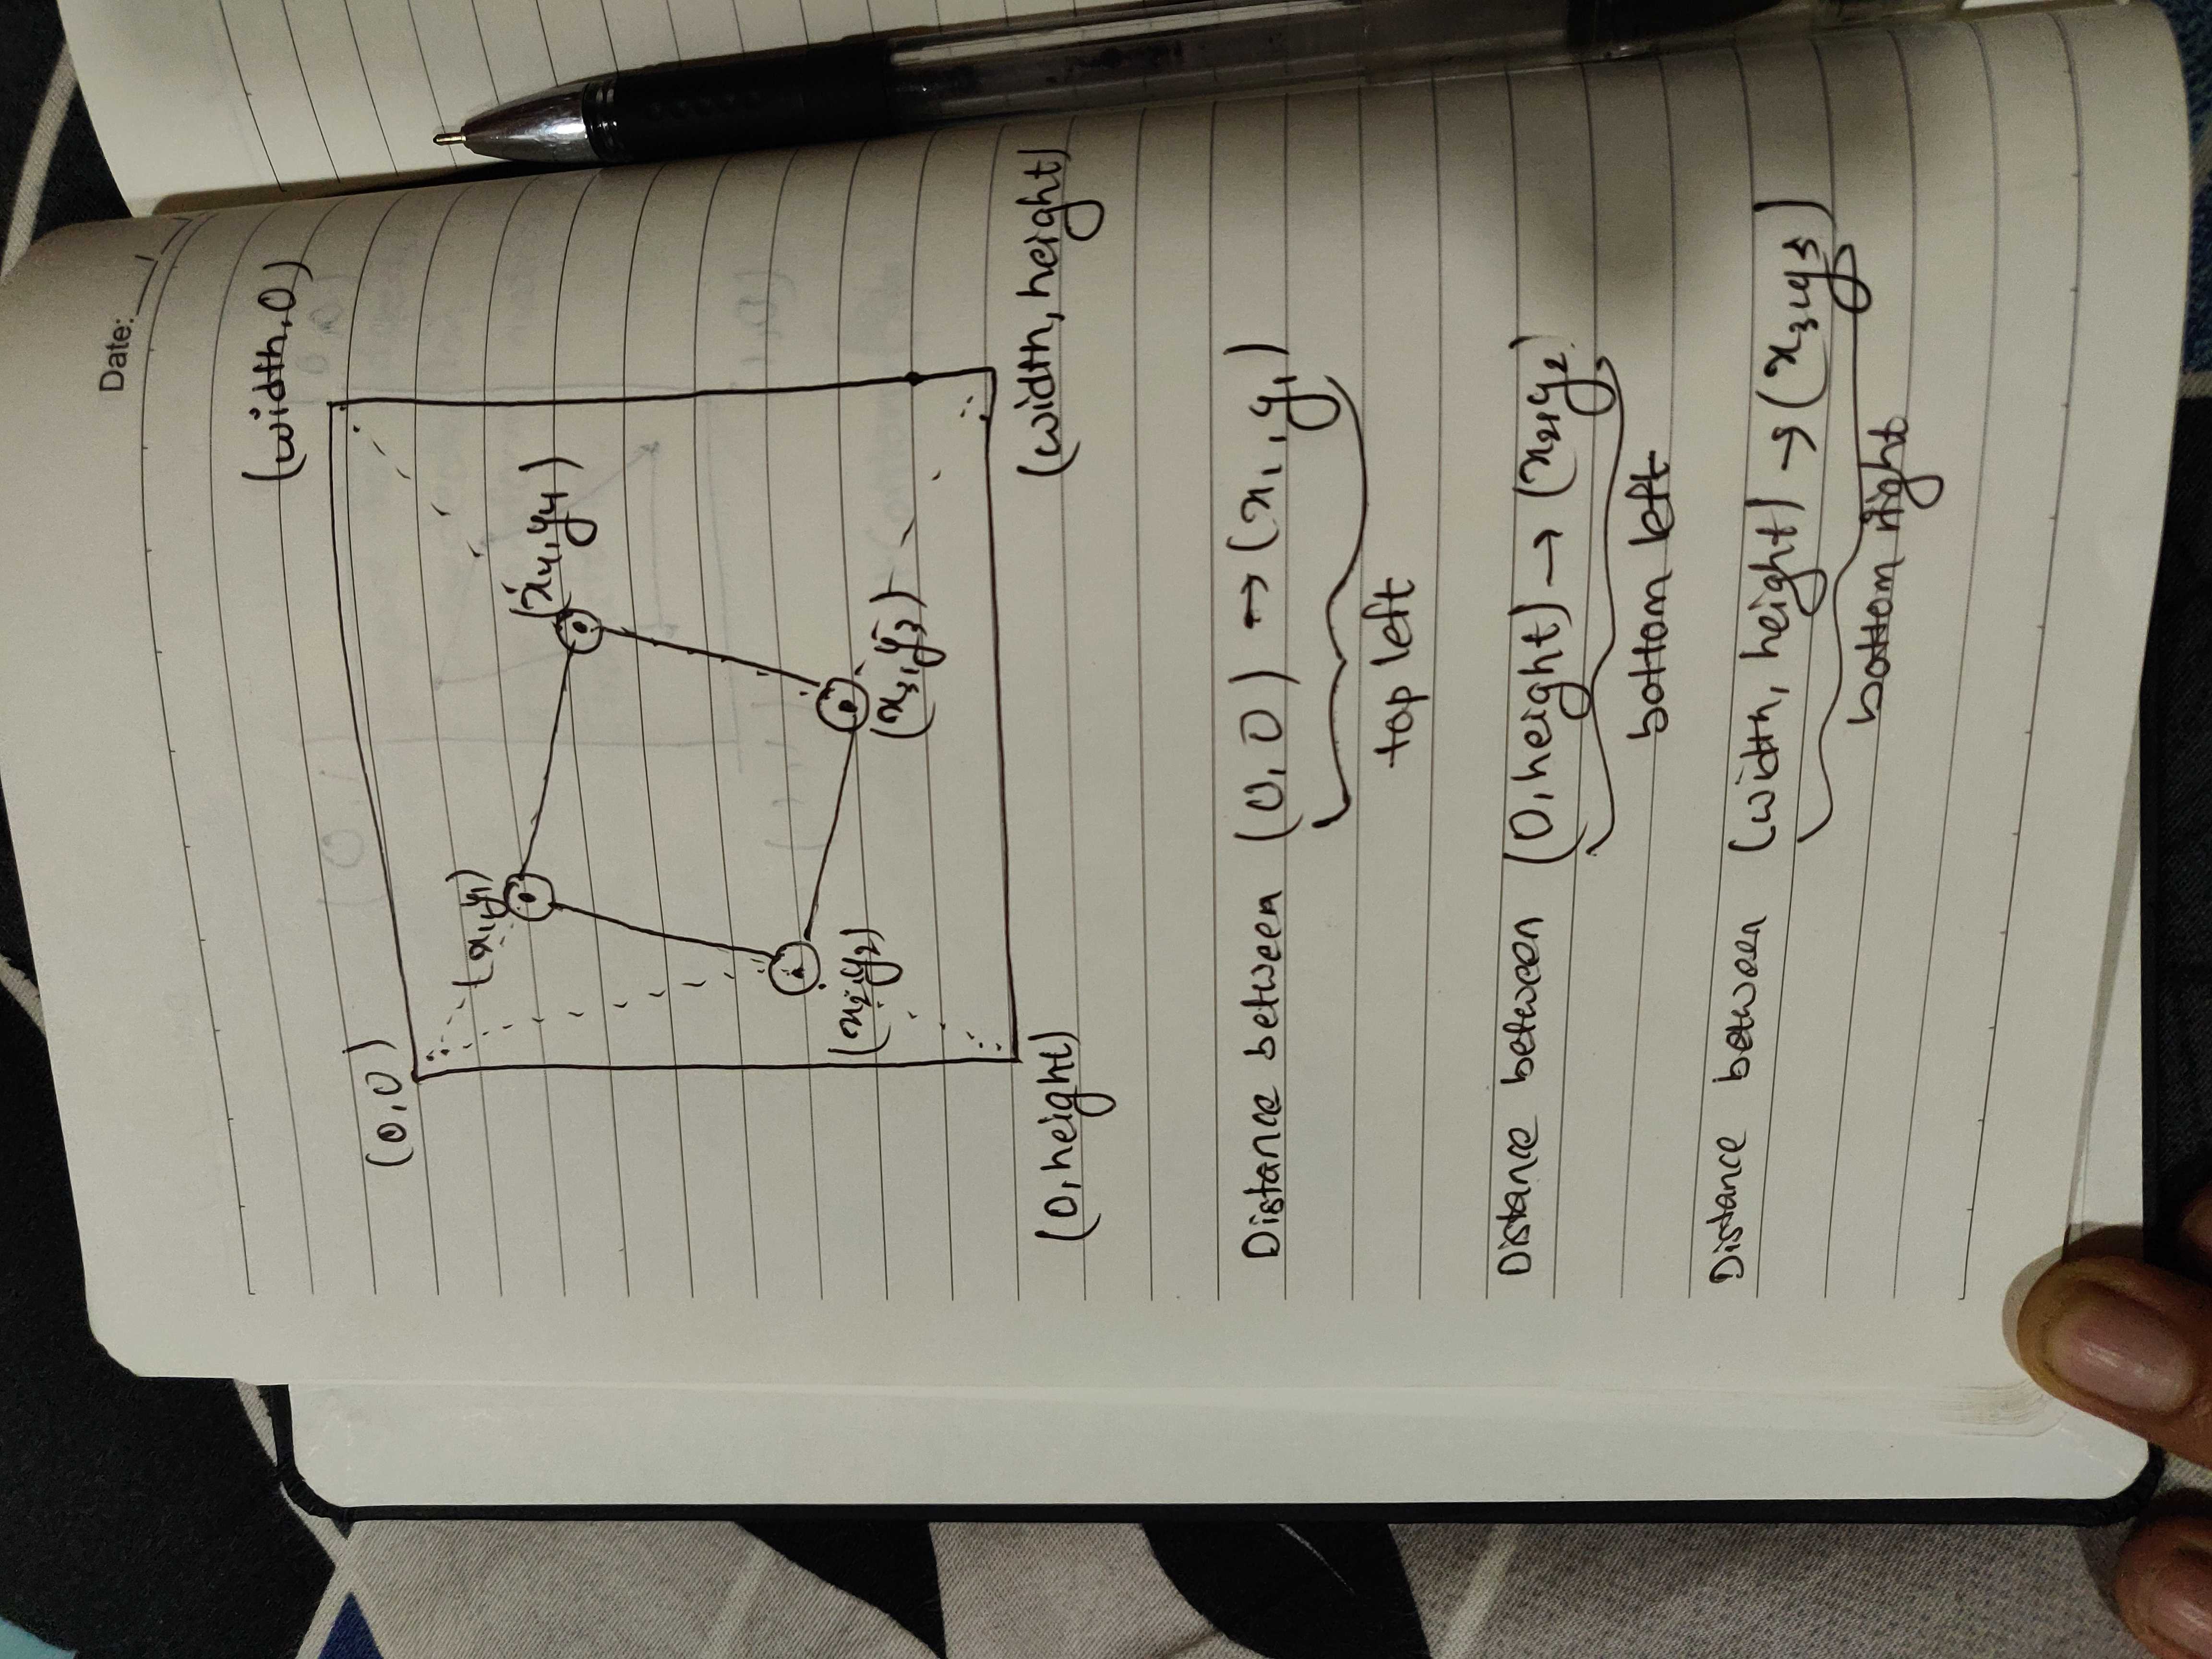 Date:
(0,0) (width,0)
(x1,y1) (x4,y4)
(x2,y2) (x3,y3)
(0,height) (width,height)
Distance between (0,0) → (x1,y1)
top left
Distance between (0,height) → (x2,y2)
bottom left
Distance between (width,height) → (x3,y3)
bottom right